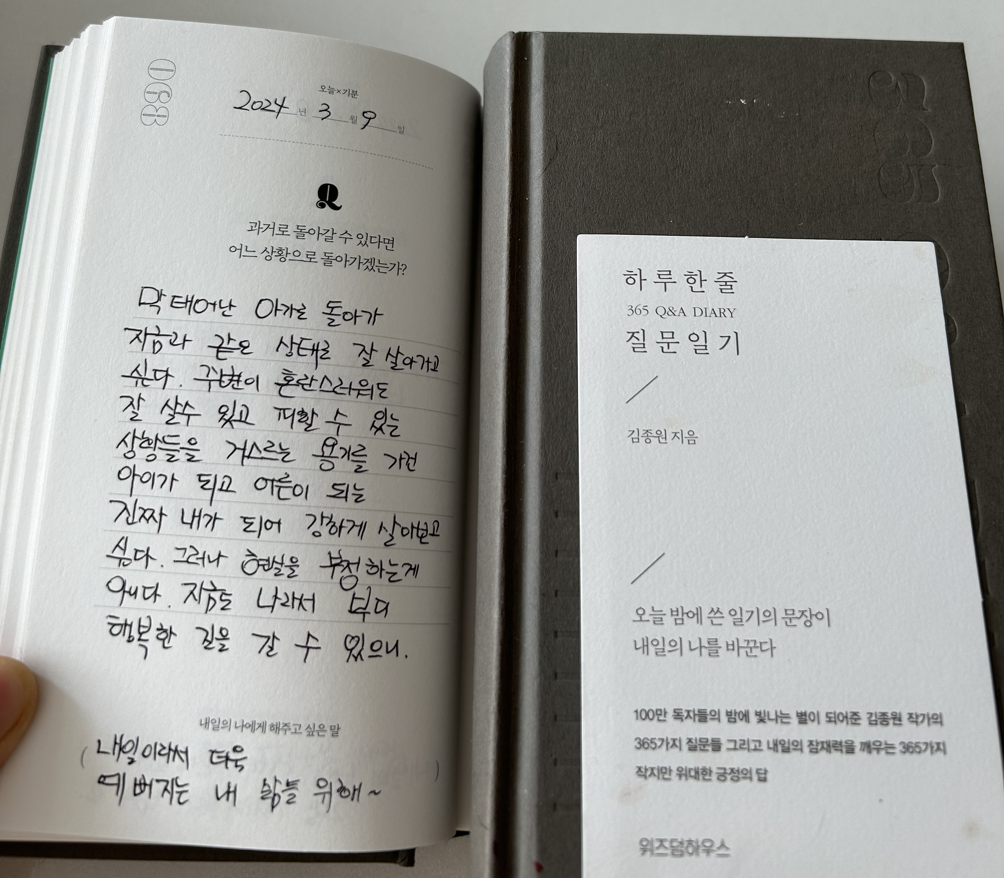 068
오늘×기분
2024년 3월 9일
Q
과거로 돌아갈 수 있다면
어느 상황으로 돌아가겠는가?
막 태어난 아가로 돌아가
지금과 같은 상태로 잘 살아가고
싶다. 주변이 혼란스러워도
잘 살수 있고 피할 수 있는
상황들을 거스르는 용기를 가진
아이가 되고 어른이 되는
진짜 내가 되어 강하게 살아보고
싶다. 그러나 현실을 부정하는게
아니다. 지금도 나라서 보다
행복한 길을 갈 수 있으니.
내일의 나에게 해주고 싶은 말
(내일이라서 더욱
예뻐지는 내 삶을 위해~)
365
하루한줄
365 Q&A DIARY
질문일기
김종원 지음
오늘 밤에 쓴 일기의 문장이
내일의 나를 바꾼다
100만 독자들의 밤에 빛나는 별이 되어준 김종원 작가의
365가지 질문들 그리고 내일의 잠재력을 깨우는 365가지
작지만 위대한 긍정의 답
위즈덤하우스